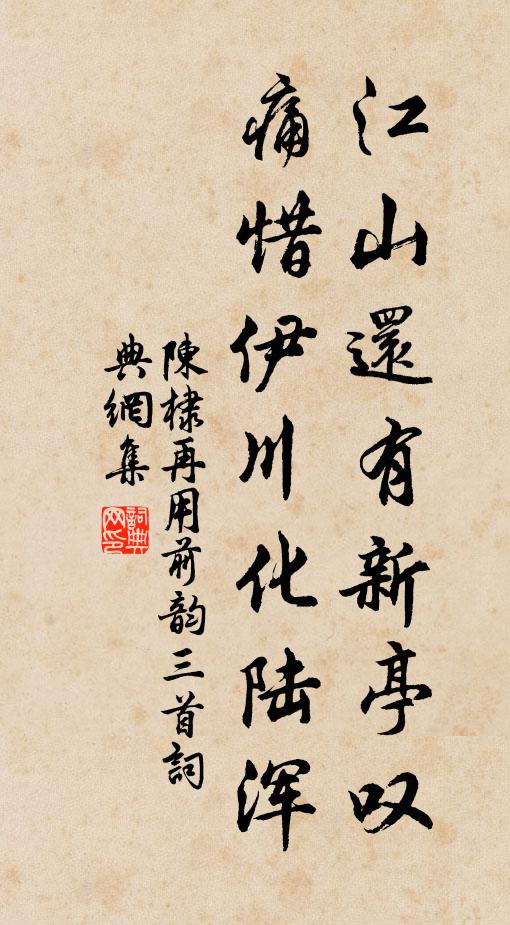 江山還有新亭叹
痛惜伊川化陆浑
陳棣再用前韵三首詞
典網集
詞典网印